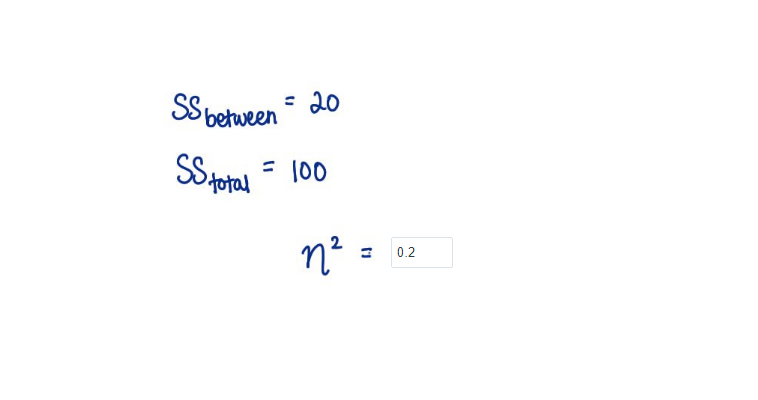 SS between = 20
SS total = 100
η² = 0.2